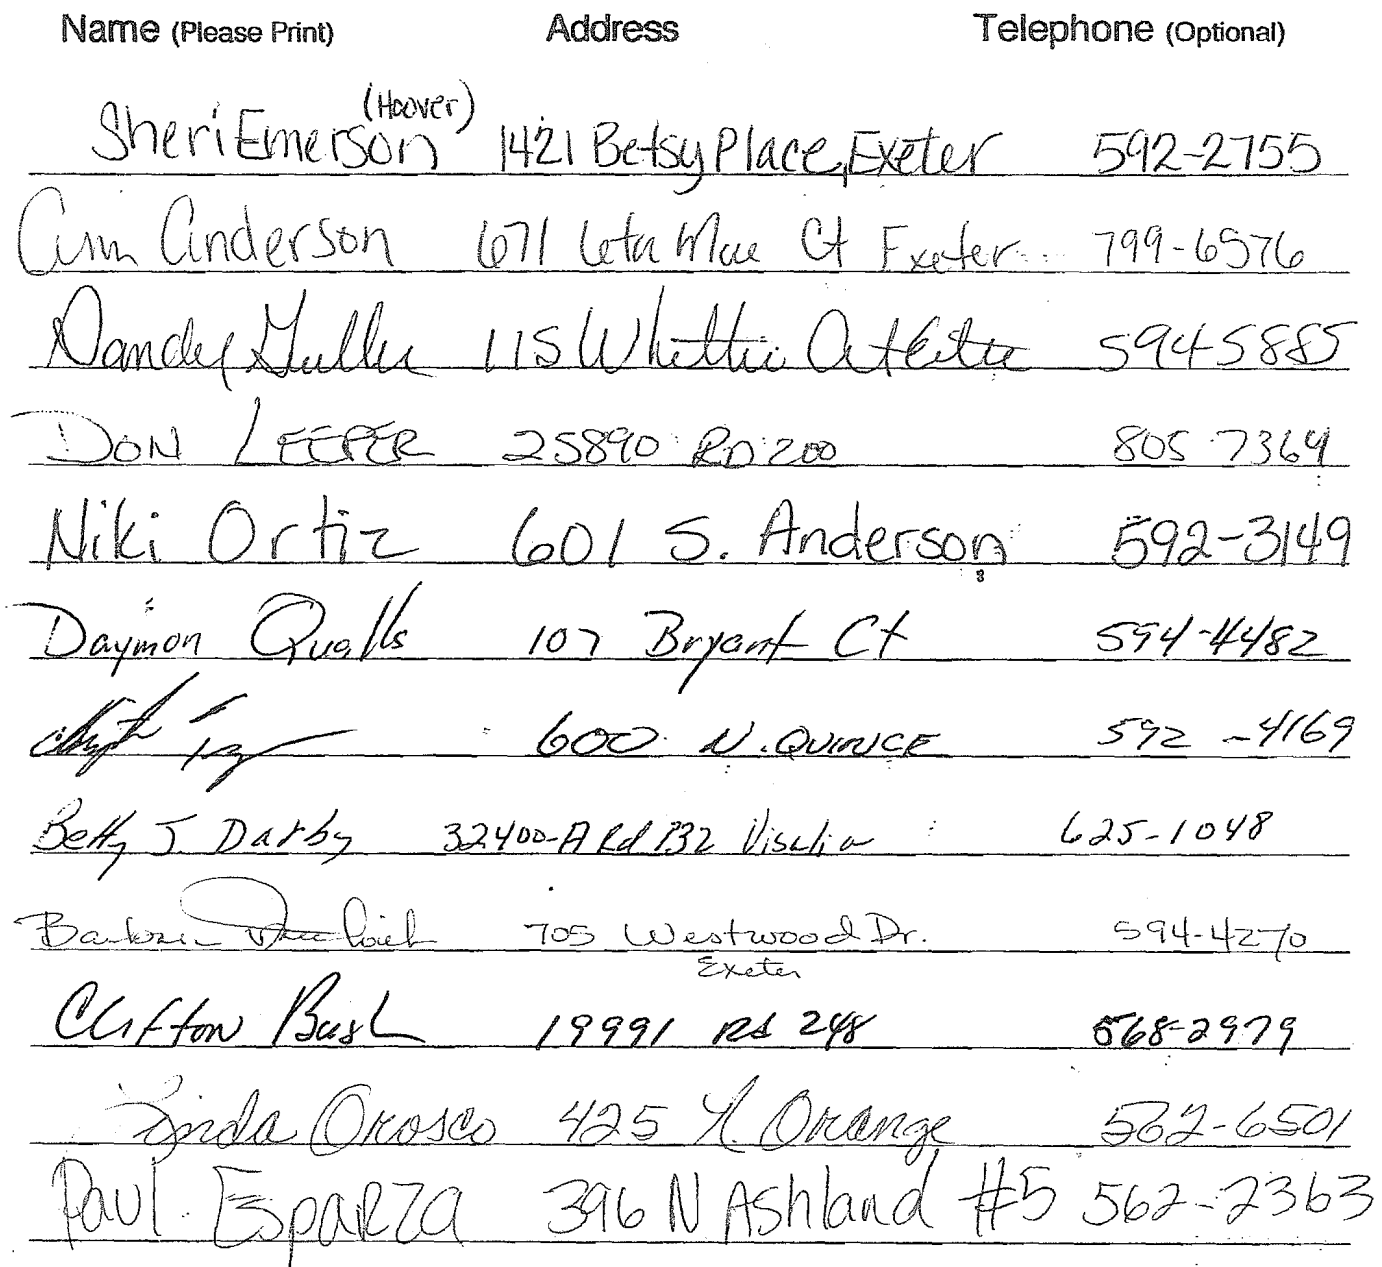 Name (Please Print) Address Telephone (Optional)
(Hoover)
Sheri Emerson 1421 Betsy Place, Exeter 592-2755
Ann Anderson 671 Leta Mae Ct Exeter 799-6576
115 Whittier Ct Exeter 594 5885
DON LEEPER 25890 RD 200 805 7364
Niki Ortiz 601 S. Anderson 592-3149
Daymon Qualls 107 Bryant Ct 594-4482
600 N. QUINCE 592-4169
Betty J. Darby 32400-A Rd 132 Visalia 625-1048
Barbara 705 Westwood Dr. 594-4270
Exeter
Clifton Bush 19991 Rd 248 568-2979
Linda Orosco 425 N. Orange 562-6501
Paul Esparza 396 N Ashland #5 562-2363